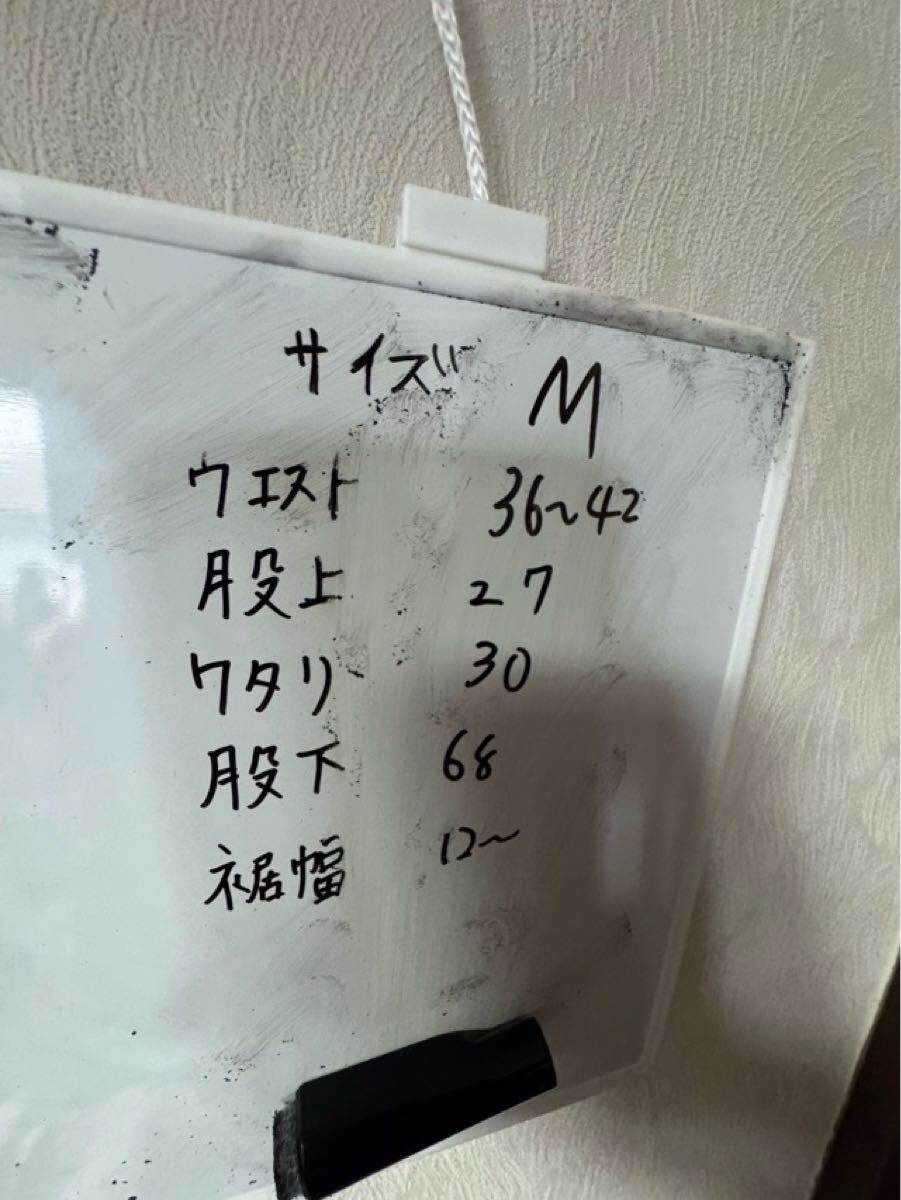 サイズ M
ウエスト 36~42
股上 27
ワタリ 30
股下 68
裾幅 12~